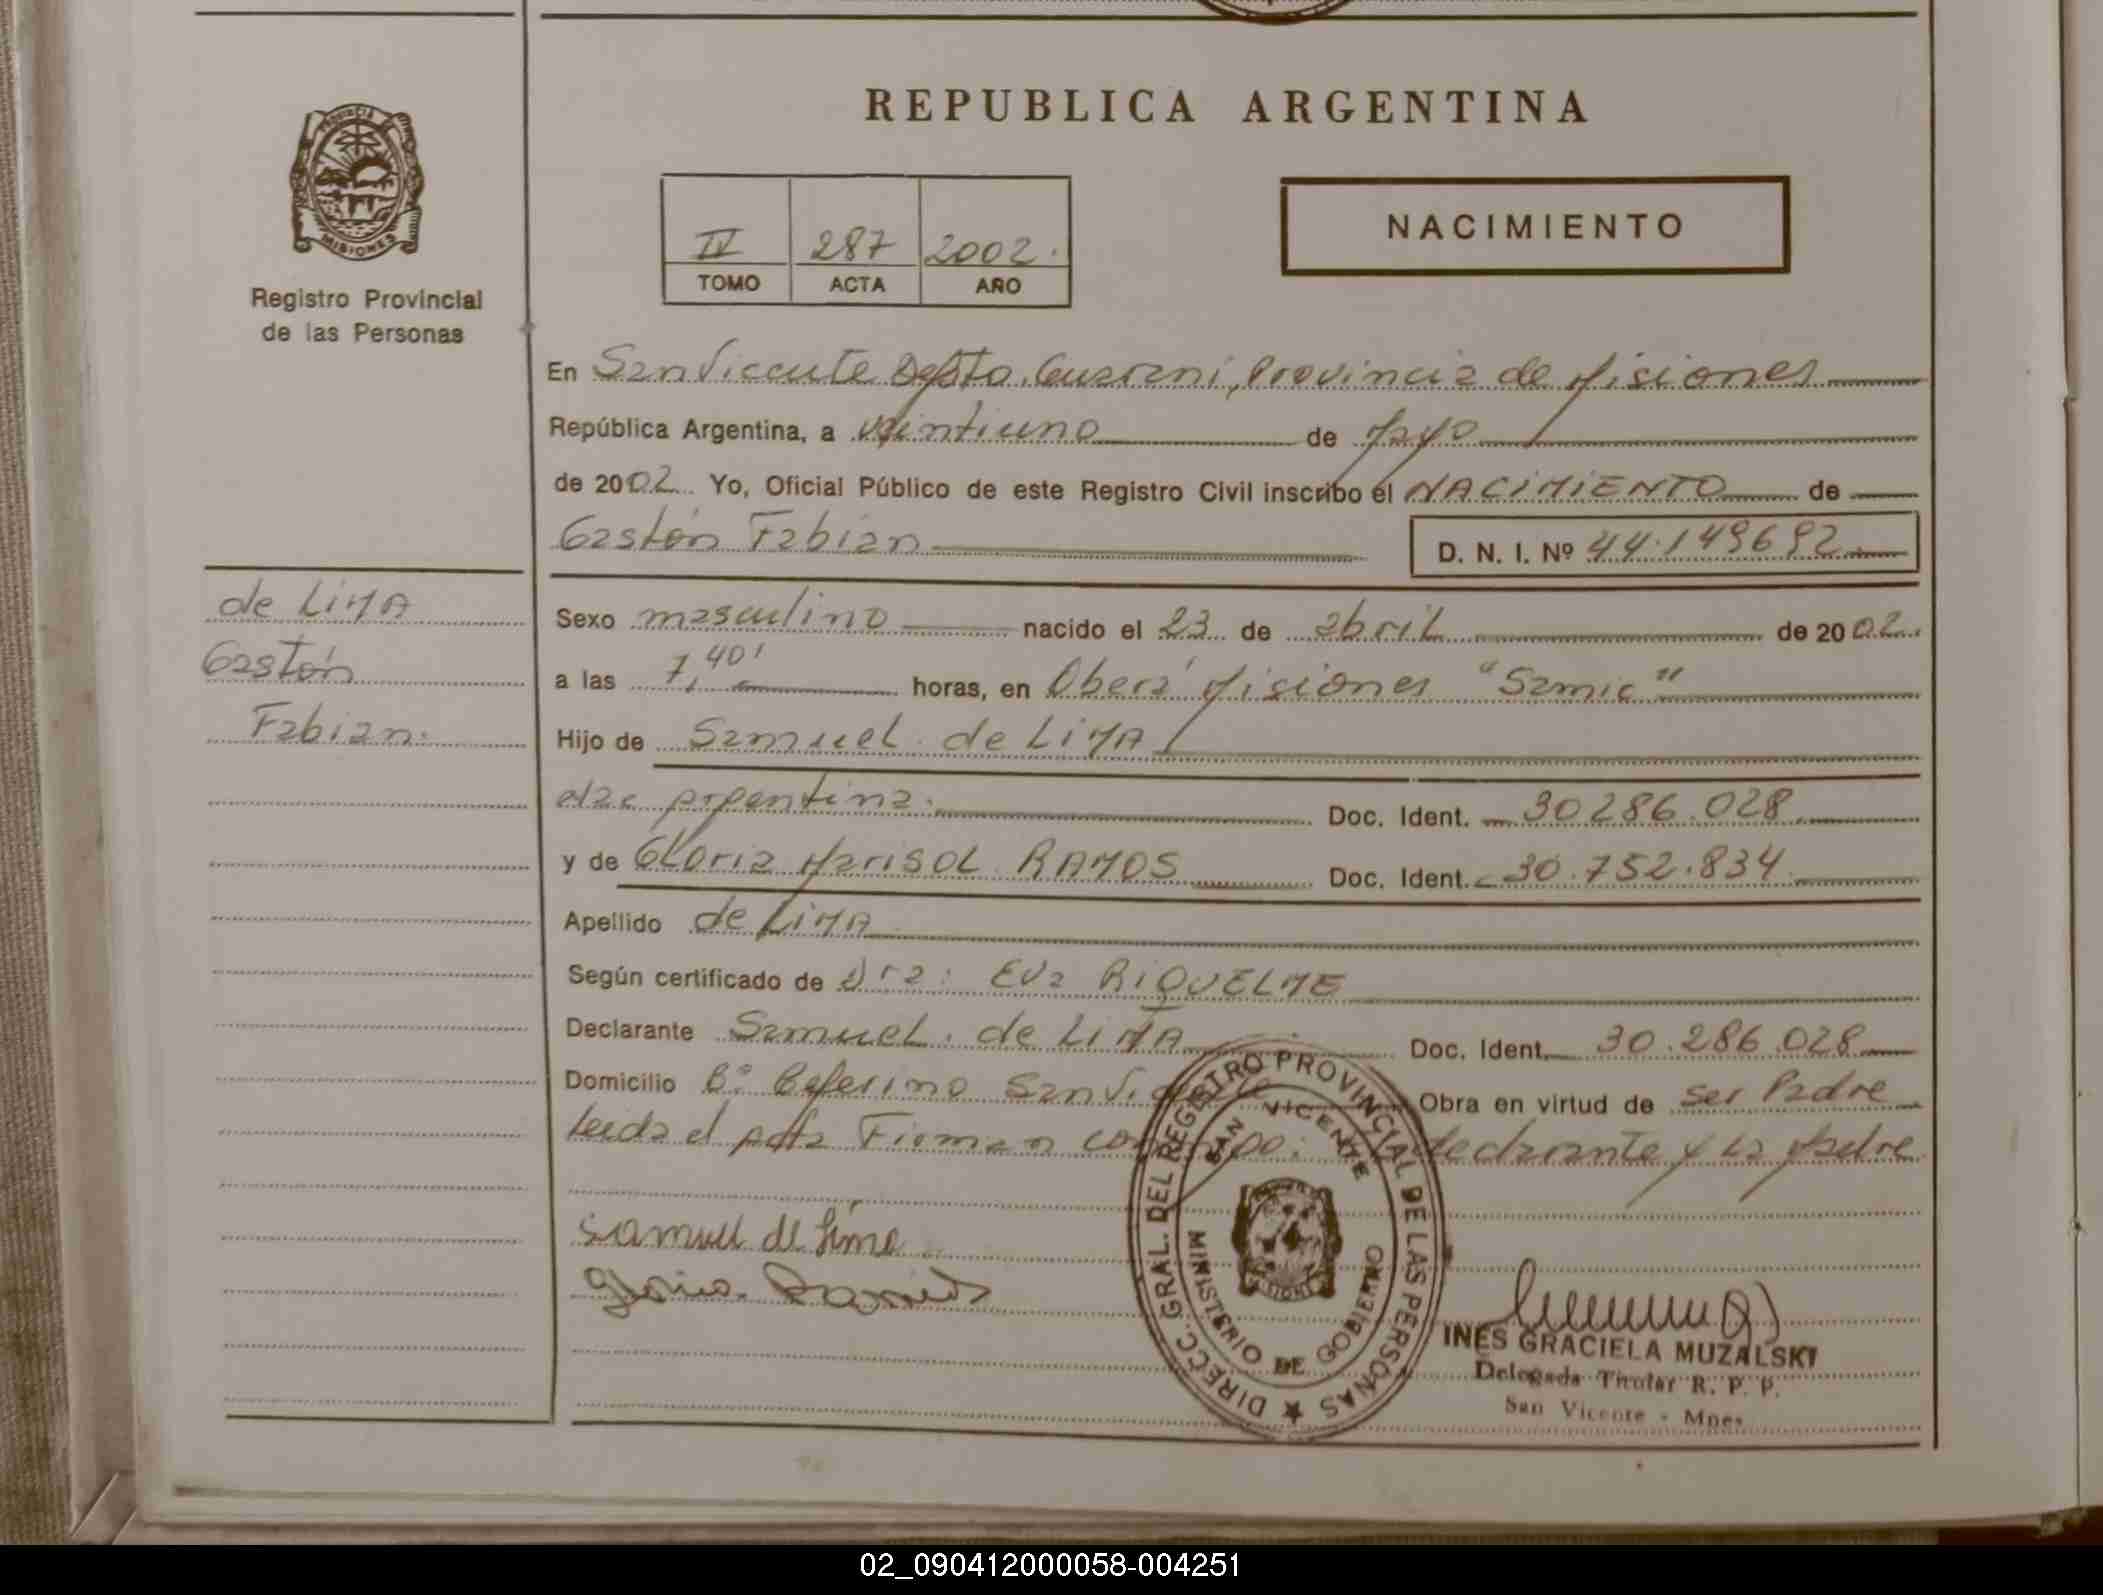 REPUBLICA ARGENTINA
PROVINCIA DE
MISIONES
Registro Provincial
de las Personas
IV 287 2002.
TOMO ACTA AÑO
NACIMIENTO
En San Vicente Depto. Guarani, Provincia de Misiones
República Argentina, a veintiuno de Mayo
de 2002. Yo, Oficial Público de este Registro Civil inscribo el NACIMIENTO de
Gastón Fabian D. N. I. Nº 44.149692
de LIMA
Gastón
Fabian.
Sexo masculino nacido el 23 de abril de 2002.
a las 7,40' horas, en Oberá Misiones "Samic"
Hijo de Samuel de LIMA
Argentina. Doc. Ident. 30286.028
y de Gloria Marisol RAMOS Doc. Ident. 30.752.834
Apellido de LIMA
Según certificado de Dra: Eva RIQUELME
Declarante Samuel de LIMA Doc. Ident. 30.286.028
Domicilio Bº Ceferino San Vicente Obra en virtud de ser Padre
Leida el Acta Firman conmigo: declarante y la Madre
Samuel de Lima
Gloria Ramos
DIRECC. GRAL. DEL REGISTRO PROVINCIAL DE LAS PERSONAS
SAN VICENTE
MINISTERIO DE GOBIERNO
INES GRACIELA MUZALSKI
Delegada Titular R. P. P.
San Vicente - Mnes
02_090412000058-004251